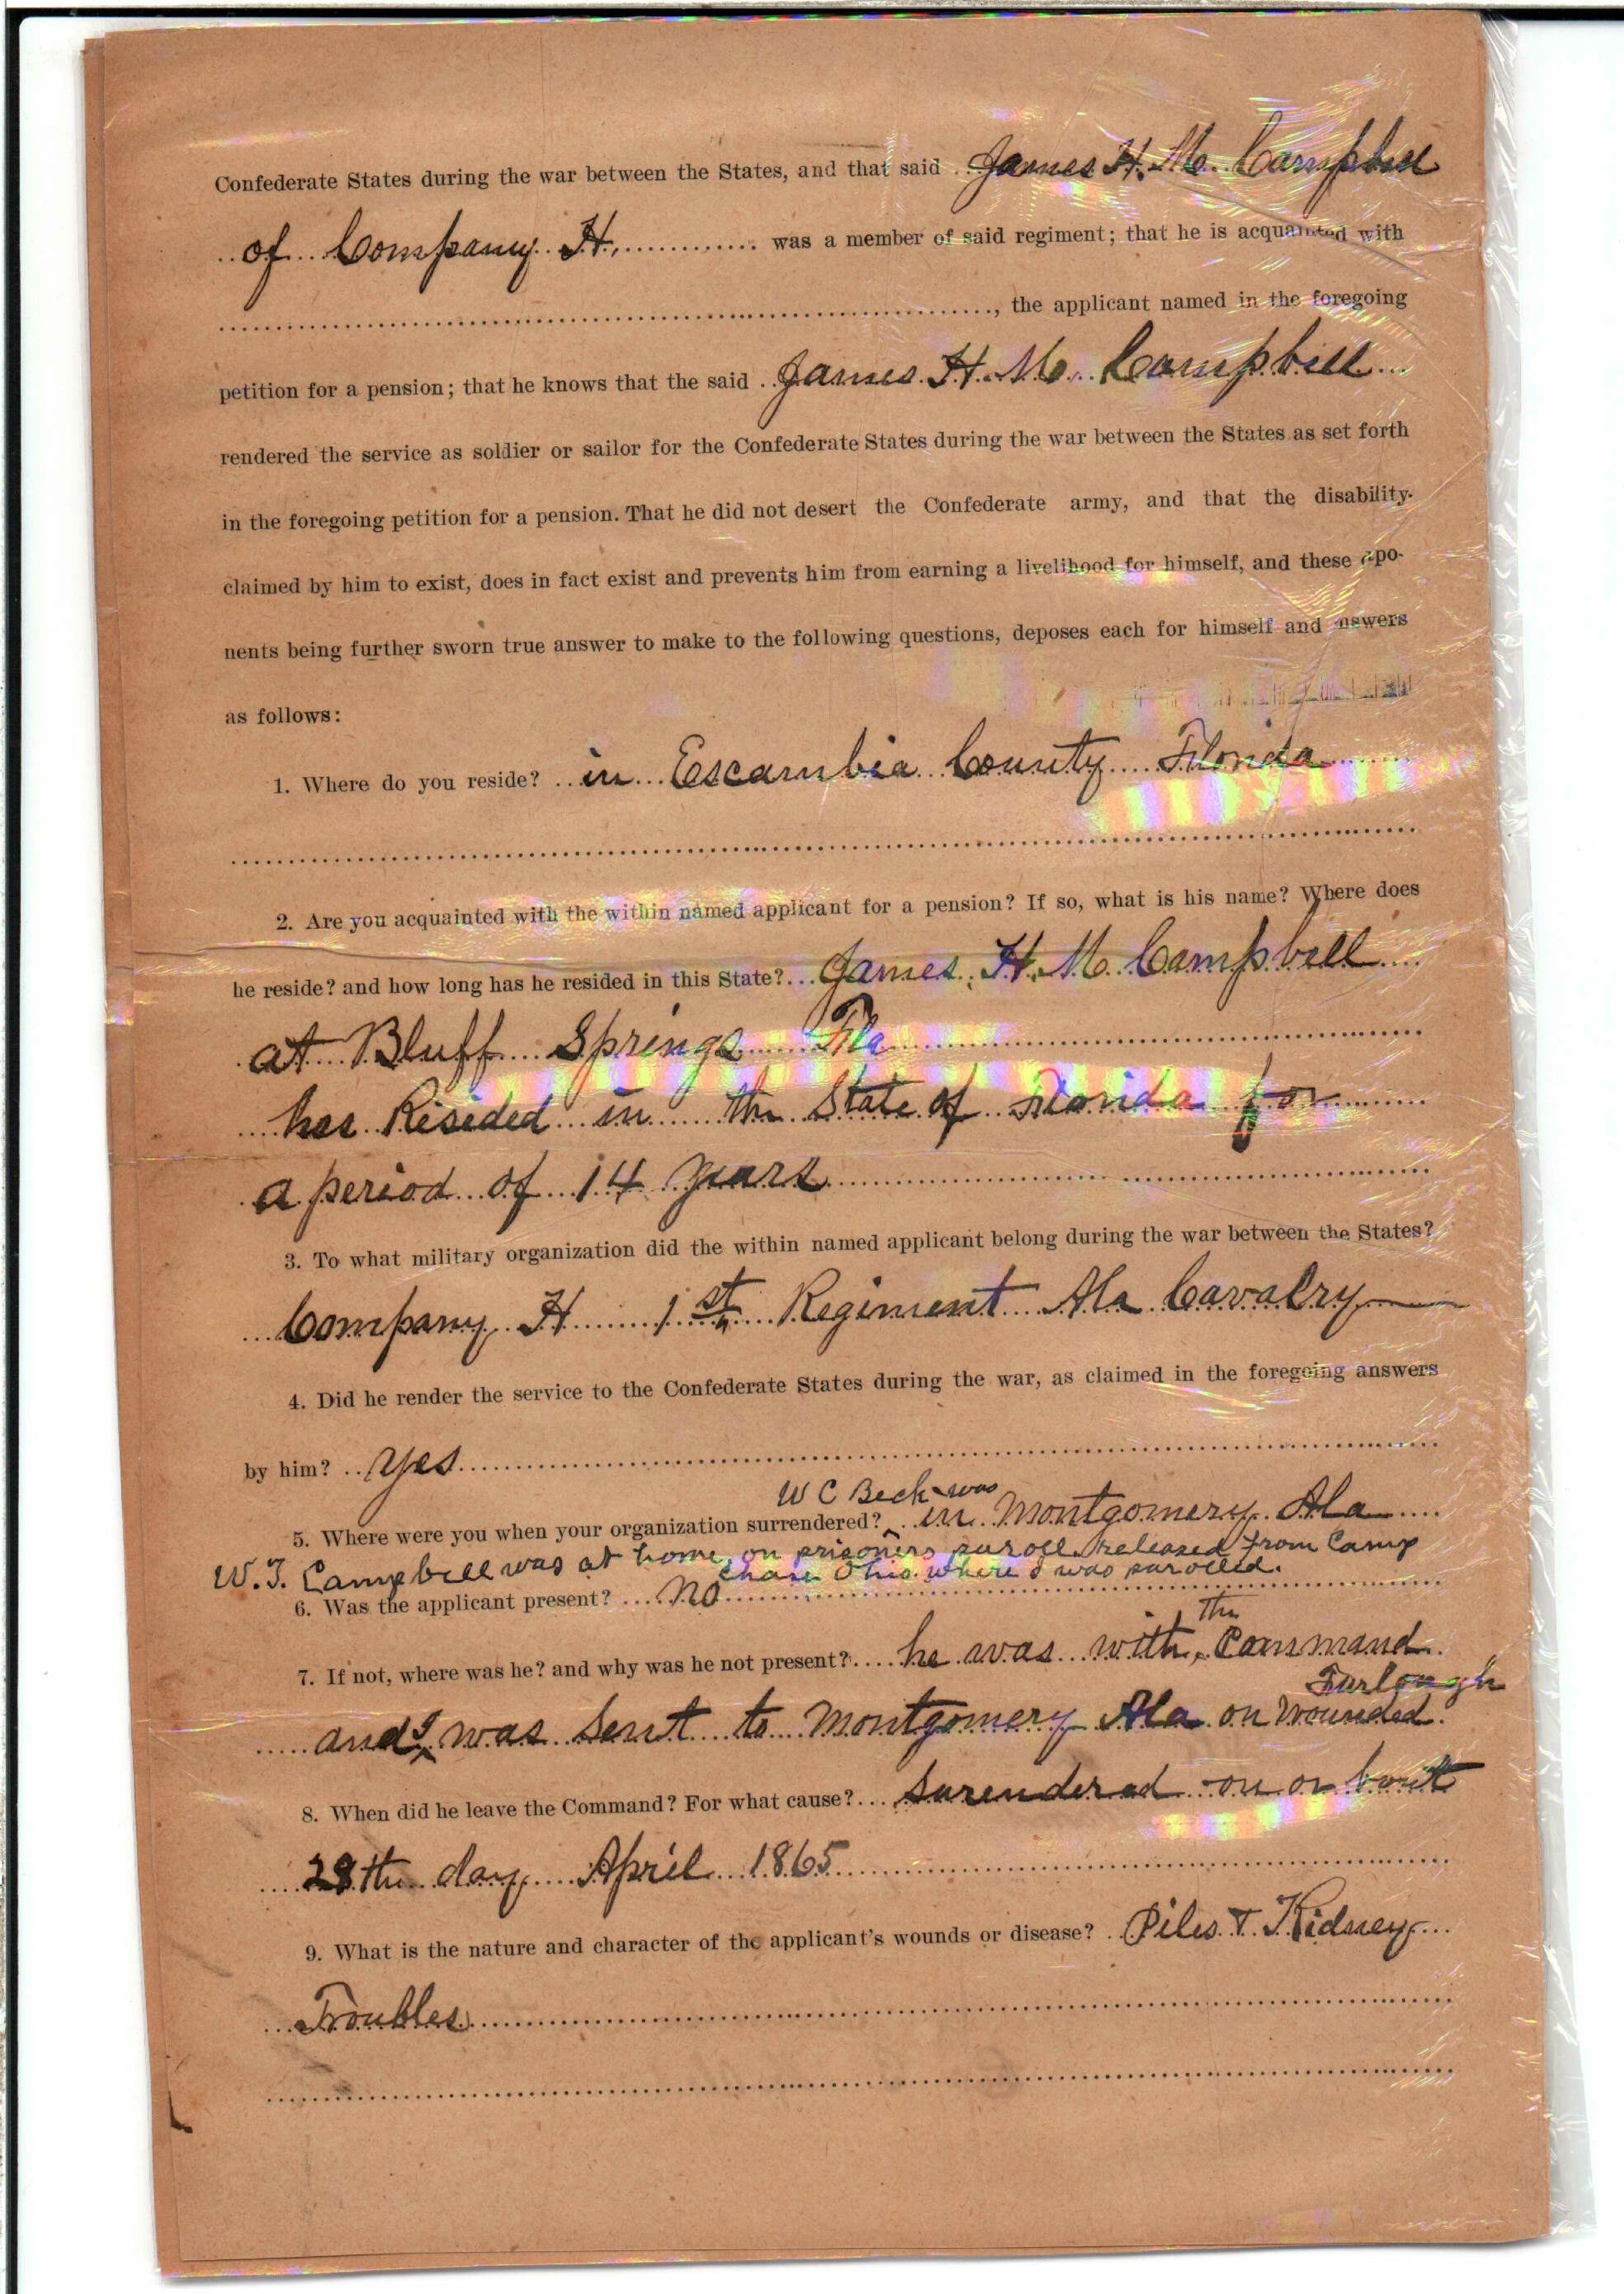 Confederate States during the war between the States, and that said James H. Mc. Campbell
of Company H. was a member of said regiment; that he is acquainted with
, the applicant named in the foregoing
petition for a pension; that he knows that the said James H. Mc. Campbell
rendered the service as soldier or sailor for the Confederate States during the war between the States as set forth
in the foregoing petition for a pension. That he did not desert the Confederate army, and that the disability
claimed by him to exist, does in fact exist and prevents him from earning a livelihood for himself, and these depo-
nents being further sworn true answer to make to the following questions, deposes each for himself and answers
as follows:
1. Where do you reside? in Escambia County Florida
2. Are you acquainted with the within named applicant for a pension? If so, what is his name? Where does
he reside? and how long has he resided in this State? James H. Mc Campbell
at Bluff Springs Fla
has Resided in the State of Florida for
a period of 14 years
3. To what military organization did the within named applicant belong during the war between the States?
Company H 1st Regiment Ala Cavalry
4. Did he render the service to the Confederate States during the war, as claimed in the foregoing answers
by him? yes
W C Beck was
5. Where were you when your organization surrendered? in Montgomery Ala
W. J. Campbell was at home on prisoners paroll released from Camp
Chase Ohio where I was parolled.
6. Was the applicant present? No
7. If not, where was he? and why was he not present? he was with the Command
and I was sent to Montgomery Ala on wounded Furlough
8. When did he leave the Command? For what cause? Surendered on or bout
28th day April 1865
9. What is the nature and character of the applicant's wounds or disease? Piles & Kidney
Troubles